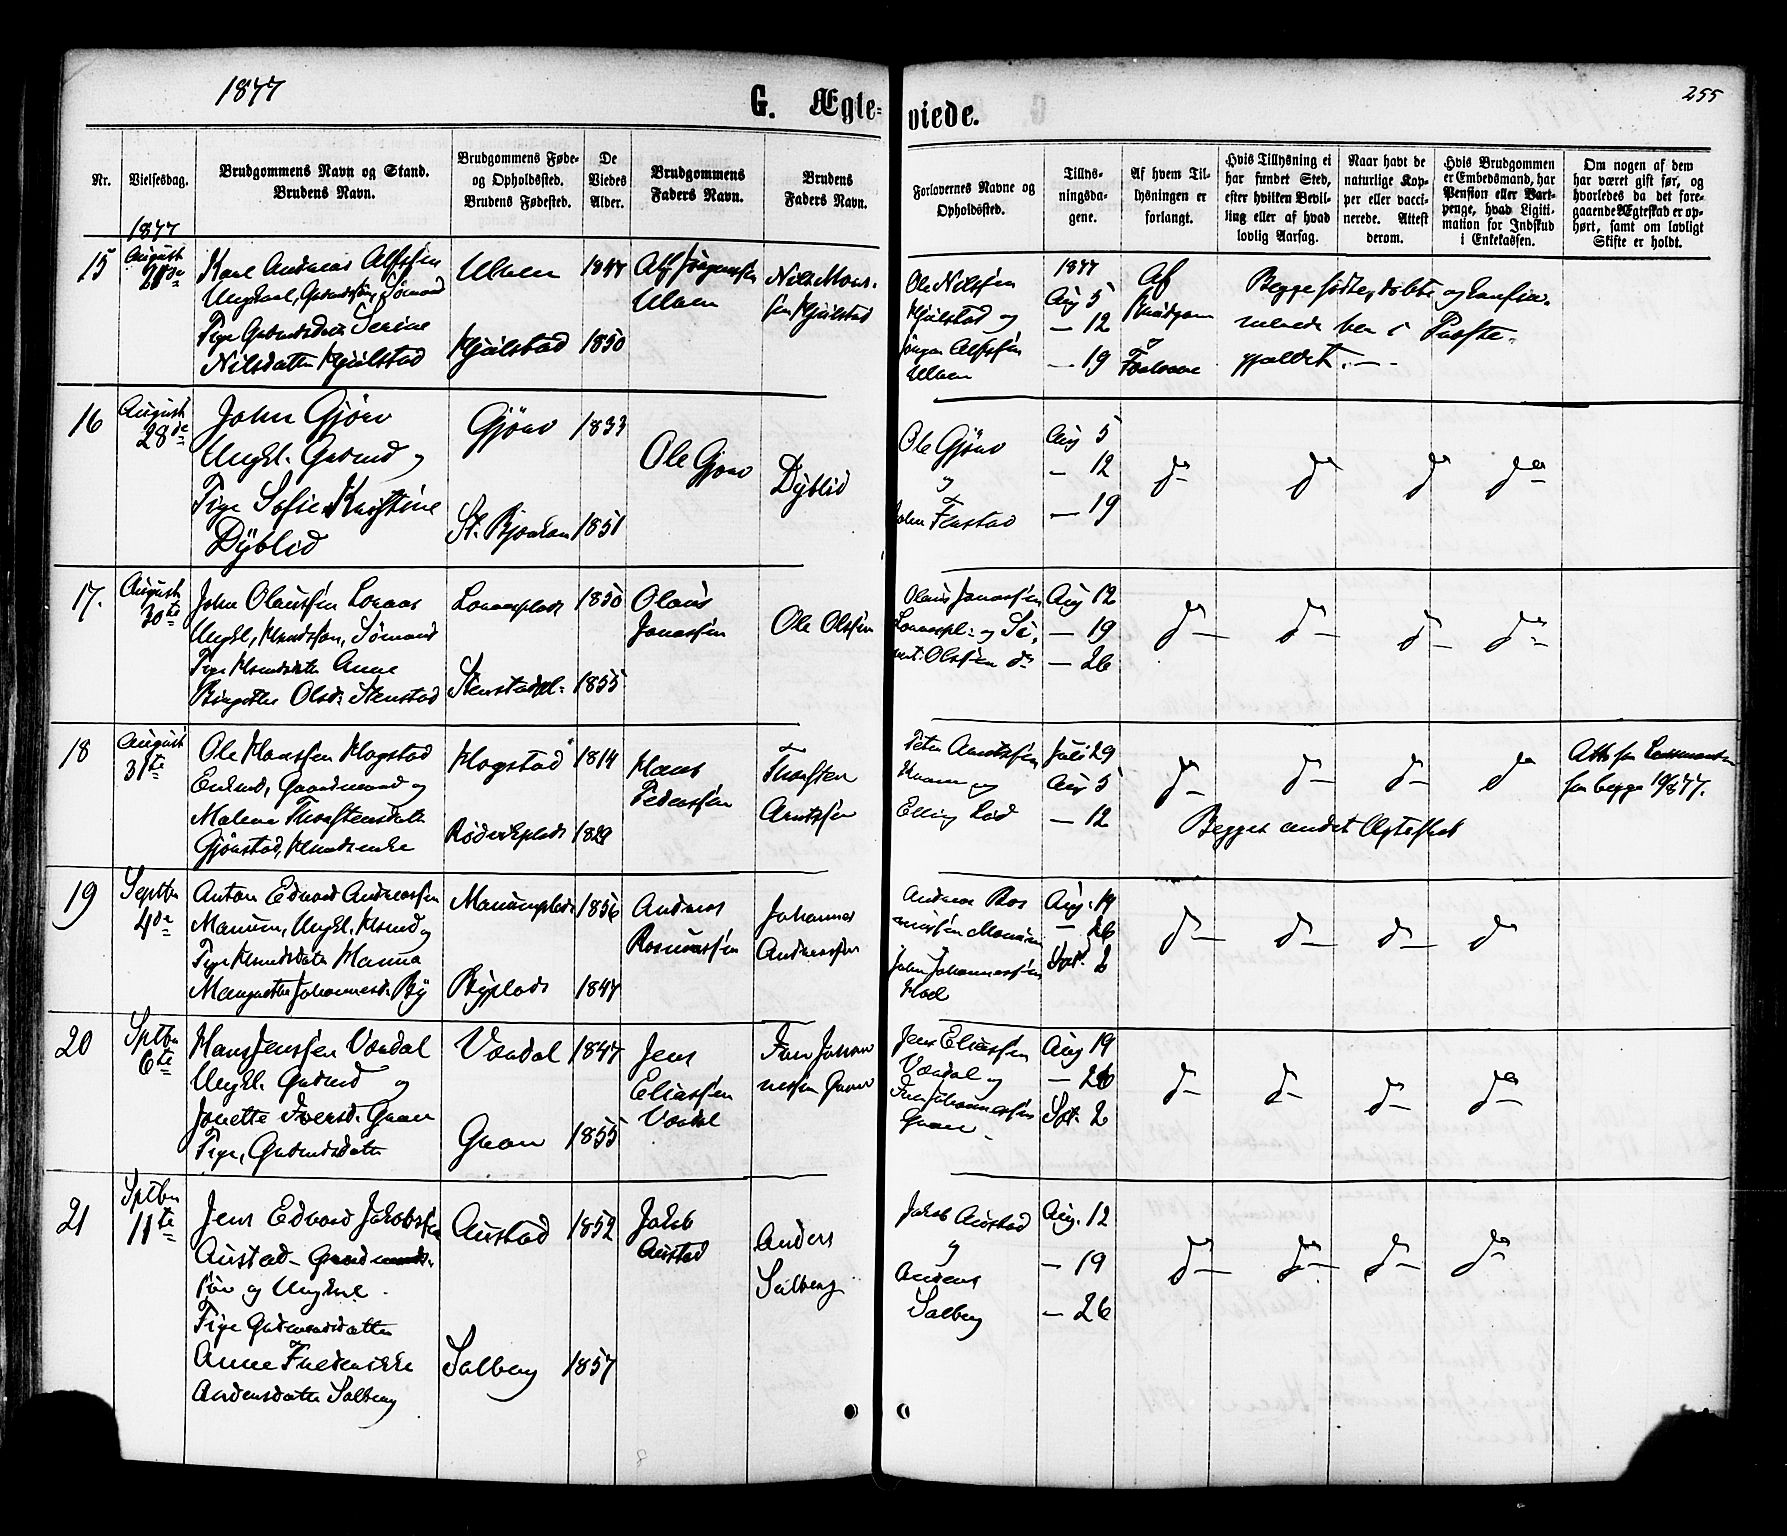 1877
G. Ægte-
viede.
255
Nr.
Vielsesdag.
Brudgommens Navn og Stand.
Brudens Navn.
Brudgommens Føde-
og Opholdssted.
Brudens Fødested.
De
Viedes
Alder.
Brudgommens
Faders Navn.
Brudens
Faders Navn.
Forlovernes Navne og
Opholdssted.
Tillys-
ningsda-
gene.
Af hvem Til-
lysningen er
forlangt.
Hvis Tillysning ei
har fundet Sted,
efter hvilken Bevil-
ling eller af hvad
lovlig Aarsag.
Naar havt de
naturlige Kop-
per eller vacci-
nerede. Attest
derom.
Hvis Brudgommen
er Embedsmand, har
Pension eller Vart-
penge, hvad Ligiti-
mation for Indskud
i Enkekassen.
Om nogen af dem
har været gift før, og
hvorledes da det fore-
gaaende Ægteskab er op-
hørt, samt om lovligt
Skifte er holdt.
1877
15
August
21de
Karl Andreas Alfsen
Ungkarl, Gaardm.
Pige Gaardmd. Serine
Nilsdatter Hjulstad
Ulven
Hjulstad
1847
1850
Alf Jørgenssen
Ulven
Nils Mons-
sen Hjulstad
Ole Nilssen
Hjulstad og
Jørgen Alfssen
Ulven
1877
Aug 5
— 12
— 19
Af
Brudgom
og
Forlovere
Begge fødte, døbte og konfir-
merede her i Præste-
gjældet. —
16
August
28de
John Gjørv
Ungkl. Gaardmd og
Pige Sofie Kristine
Dyblid
Gjørv
St.
1833
1851
Ole Gjørv
Dyblid
Ole Gjørv
og
John Flustad
Aug 5
— 12
— 19
do
do
do
do
17.
August
30te
John Olaussen Loraas
Ungkl, Husmdssøn, Sømand
Pige Husmdsdatter Anne
Birgitte Olsd: Stenstad
Loraasplads
Stenstadpl:
1850
1855
Olaus
Jonassen
Ole Olssen
Olaus Jonassen
Loraaspl: og Si-
mt. Olssen do
Aug 12
— 19
— 26
do
do
do
do
18
August
31te
Ole Hanssen Hogstad
Enkemd, Gaardmand og
Malena Thorstensdatter
Gjørstad, Husmdsenke
Hogstad
Rødvikplads
1814
1829
Hans
Pederssen
Thorsten
Arntssen
Peter Arntssen
Kvam og
Elling Lød
Juli 29
Aug 5
— 12
do
do
do
do
Begges andet Ægteskab
Att: fra Lensmanden
for begge 10/8 77.
19
Septbr
4de
Anton Edvard Andreassen
Manum, Ungkl. Husmd og
Pige Husmdsdatter Hanna
Margrethe Johannesd. By
Manumplads
Byplads
1856
1847
Andreas
Rasmussen
Johannes
Andreassen
Andreas Ras
mussen Manum
og
John Johannessen
Hoel
Aug. 19
— 26
Sept. 2
do
do
do
do
20
Sptbr
6te
Hans Jenssen Vordal
Ungkl. Gaardmd og
Jonette Iversd. Gran
Pige, Gaardmdsdatter
Vordal
Gran
1847
1855
Jens
Eliassen
Vordal
Iver Johan
nessen Gran
Jens Eliassen
Vordal og
Iver Johannessen
Gran
Aug 19
— 26
Spt. 2
do
do
do
do
21
Sptbr
11te
Jens Edvard Jakobssen
Austad — Gaardmands-
søn og Ungkarl
Pige Gaardmandsdatter
Anne Frederikke
Andersdatter Salberg
Austad
Salberg
1852
1857
Jakob
Austad
Anders
Salberg
Jakob Austad
og
Anders
Salberg
Aug. 12
— 19
— 26
do
do
do
do
8